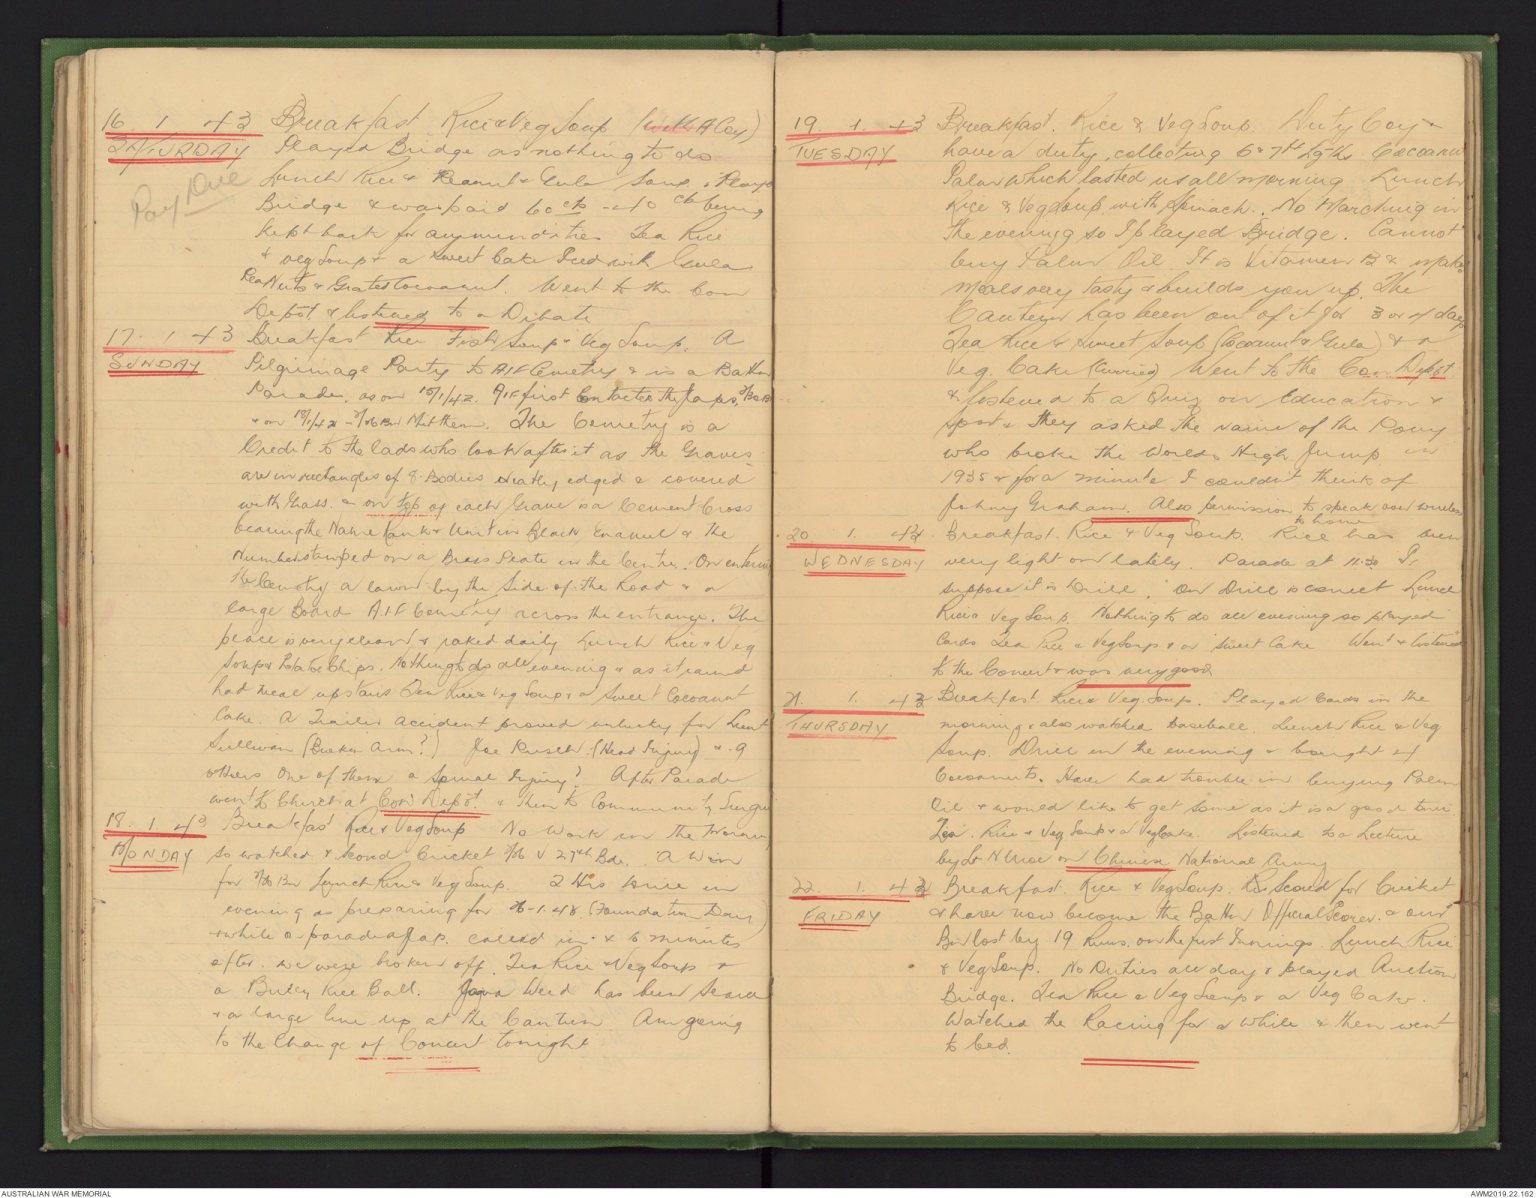 16. 1. 43 Breakfast Rice & Veg Soup (with A Coy)
SATURDAY Played Bridge as nothing to do
Pay Due Lunch Rice & Peanut & Gula Soup. & Played
Bridge & was paid 60 cts - 40 cts being
kept back for ammenities Tea Rice
& veg Soup & a sweet Cake Filled with Gula
Pea Nuts & Grated Cocoanut. Went to the Con
Depot & listened to a Debate
17. 1 43 Breakfast Rice Fish Soup & Veg Soup. A
SUNDAY Pilgrimage Party to AIF Cemetry & is a Battn
Parade, as on 15/1/42. AIF first Contacted the Japs,
& on Met them. The Cemetry is a
Credit to the lads who look after it as the Graves
are in rectangles of 8 Bodies neatly edged & covered
with Grass. & on top of each Grave is a Cement Cross
bearing the Name Rank & Unit in Black Enamel & the
Number stamped on a Brass Plate in the Centre. On entering
the Cemetry a lawn by the side of the Road & a
large Board A.I.F Cemetry across the entrance. The
place is very clean & raked daily Lunch Rice & Veg
Soup & Potato Chips. Nothing to do all evening & as it rained
had meal upstairs Tea Rice & Veg Soup & a Sweet Cocoanut
Cake. A Trailer accident proved unlucky for Lieut
Sullivan (Broken Arm?) Joe Rusch (Head Injury) & 9
others One of them a Spinal Injury? After Parade
went to Church at Con Depot & then to Community Singing
18. 1. 43 Breakfast Rice & Veg Soup No Work in the Morning
MONDAY so watched & scored Cricket v 27th Bde. A Win
for Bn Lunch Rice & Veg Soup. 2 Hrs Drill in
evening as preparing for 26-1-43. (Foundation Day)
& while on parade a Jap. called in & 5 minutes
after. we were broken off. Tea Rice & Veg Soup &
a Rice Ball. Java Weed has been Scarce
& a large line up at the Canteen Am going
to the Change of Concert tonight
19. 1. 43 Breakfast. Rice & Veg Soup. Duty Coy &
TUESDAY have a duty, collecting 6 & 7ft lgths Cocoanut
Palm which lasted us all morning Lunch
Rice & Veg Soup with Spinach. No Marching in
the evening so I played Bridge. Cannot
buy Palm Oil. It is Vitamen B & makes
Meals very tasty & builds you up. The
Canteen has been out of it for 3 or 4 days
Tea Rice & Sweet Soup (Cocoanut & Gula) & a
Veg. Cake (Curried) Went to the Con Depot
& listened to a Quiz on Education &
sport & they asked the name of the Pony
who broke the Worlds High Jump in
1935 & for a minute I couldn't think of
Johny Graham. Also permission to speak over wireless
to home
20. 1. 43 Breakfast. Rice & Veg Soup. Rice has been
WEDNESDAY very light on lately. Parade at 11.30 I
suppose it is Drill. Our Drill is correct Lunch
Rice & Veg Soup. Nothing to do all evening so played
Cards Tea Rice & Veg Soup & a sweet Cake Went & listened
to the Concert & was very good
21. 1. 43 Breakfast. Rice & Veg. Soup. Played Cards in the
THURSDAY morning & also watched Baseball. Lunch Rice & Veg
Soup. Drill in the evening & bought
Cocoanuts. Have had trouble in buying Palm
Oil & would like to get some as it is a good
Tea. Rice & Veg Soup & a Veg Cake. Listened to a Lecture
by Lt on Chinese National Army
22. 1. 43 Breakfast. Rice & Veg Soup. Scored for Cricket
FRIDAY & have now become the Battn Official Scorer. & our
Bn lost by 19 Runs. on the first Innings. Lunch Rice
& Veg Soup. No Duties all day & played Auction
Bridge. Tea Rice & Veg Soup & a Veg Cake.
Watched the Racing for a while & then went
to bed.
AUSTRALIAN WAR MEMORIAL
AWM2019.22.162